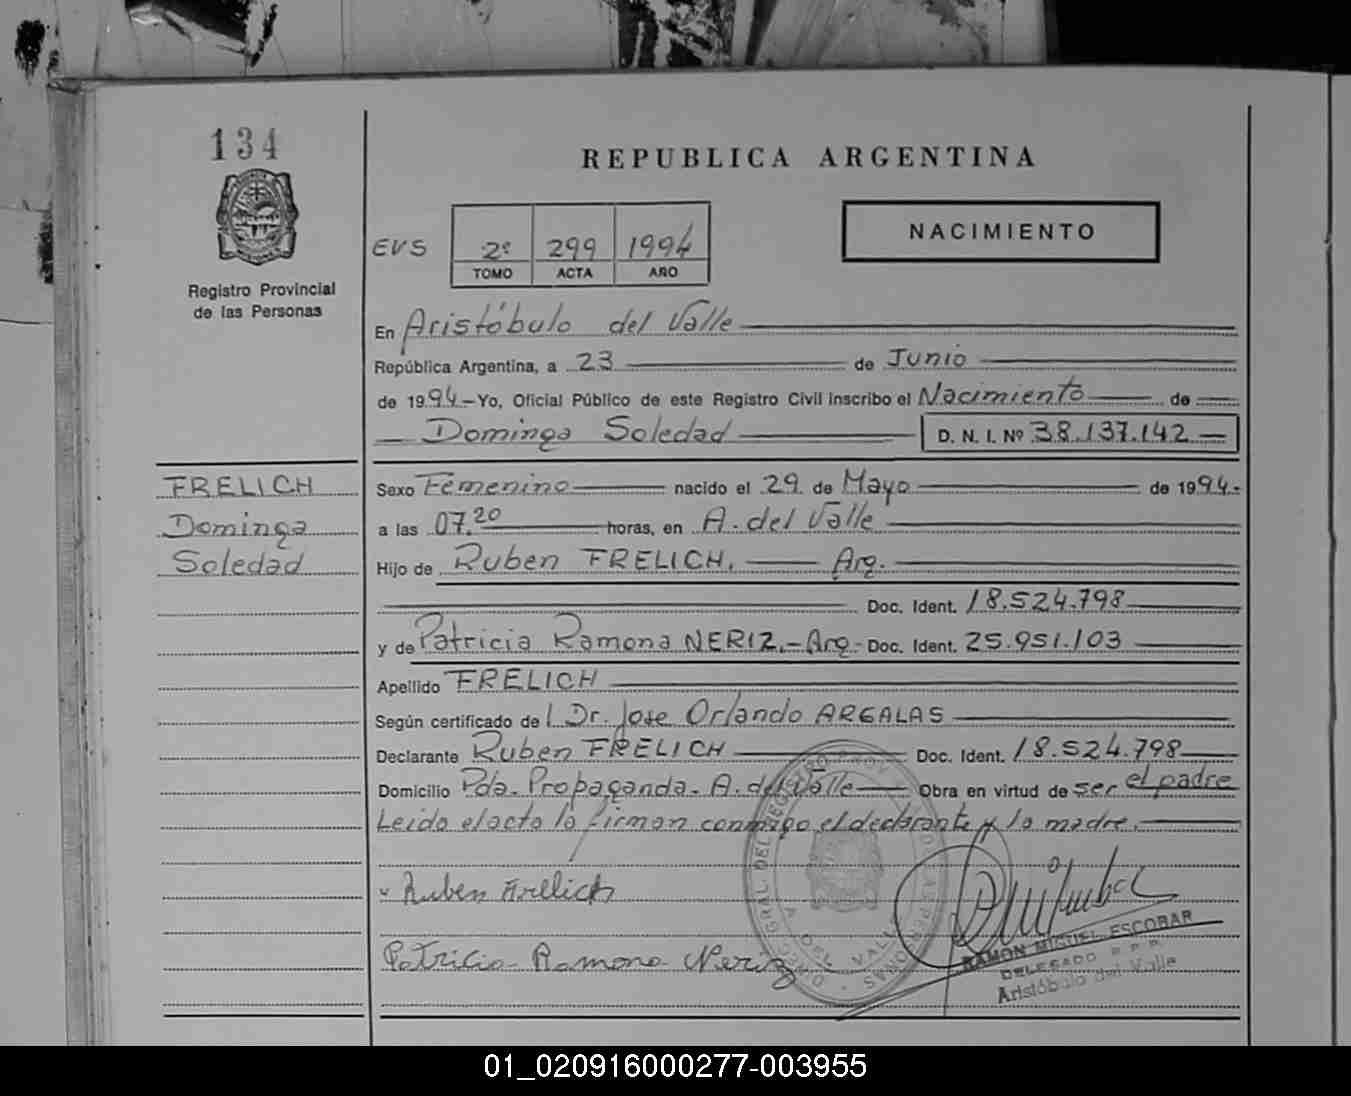 134
Registro Provincial
de las Personas
REPUBLICA ARGENTINA
NACIMIENTO
EVS 2º 299 1994
TOMO ACTA AÑO
En Aristóbulo del Valle
República Argentina, a 23 de Junio
de 1994.- Yo, Oficial Público de este Registro Civil inscribo el Nacimiento de
Dominga Soledad D. N. I. Nº 38.137.142
FRELICH
Dominga
Soledad
Sexo Femenino nacido el 29 de Mayo de 1994.-
a las 07.20 horas, en A. del Valle
Hijo de Ruben FRELICH. Arg.
Doc. Ident. 18.524.798
y de Patricia Ramona NERIZ.- Arg.- Doc. Ident. 25.951.103
Apellido FRELICH
Según certificado de l Dr. Jose Orlando ARGALAS
Declarante Ruben FRELICH Doc. Ident. 18.524.798
Domicilio Pda. Propaganda. A. del Valle Obra en virtud de ser el padre
Leido el acto lo firman conmigo el declarante y la madre.
Ruben Frelich
Patricia Ramona Neriz
RAMON MIGUEL ESCOBAR
DELEGADO R.P.P.
Aristóbulo del Valle
01_020916000277-003955